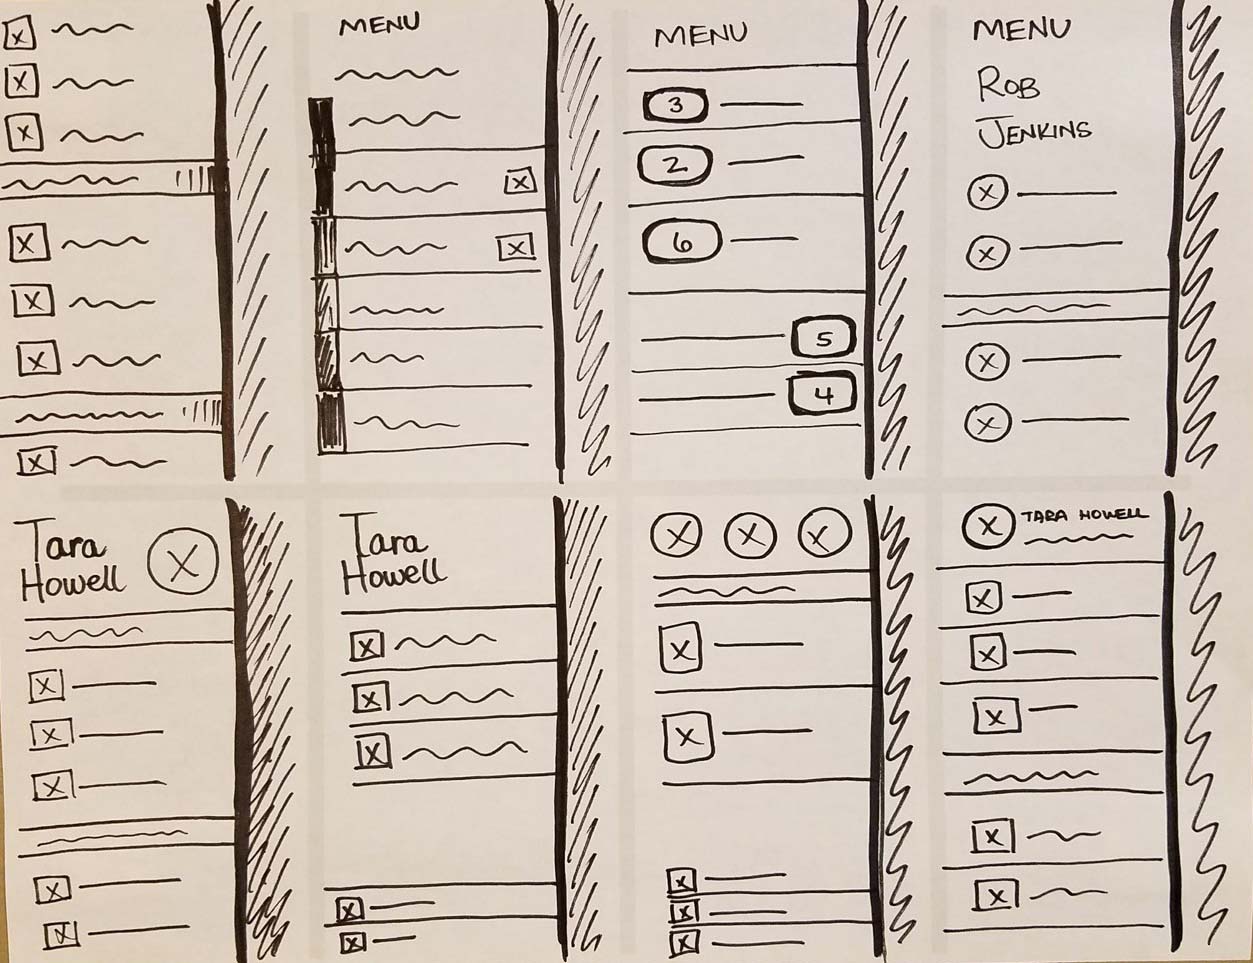 MENU
MENU
3
2
6
5
4
MENU
ROB
JENKINS
Tara
Howell
Tara
Howell
TARA HOWELL